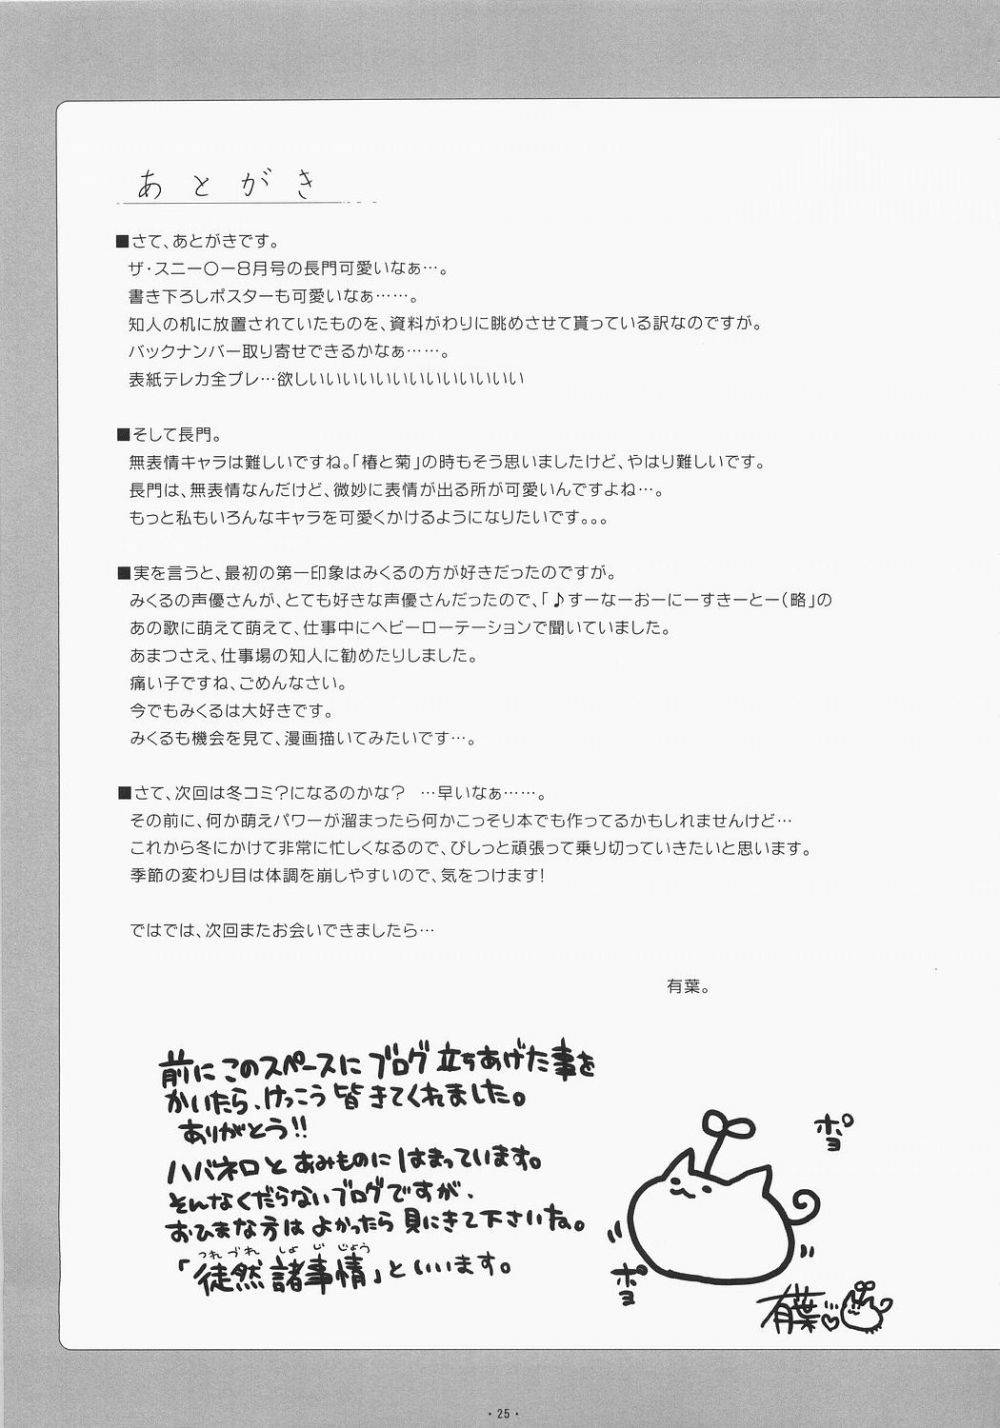 あとがき
■さて、あとがきです。
ザ・スニー〇ー8月号の長門可愛いなぁ…。
書き下ろしポスターも可愛いなぁ……。
知人の机に放置されていたものを、資料がわりに眺めさせて貰っている訳なのですが。
バックナンバー取り寄せできるかなぁ……。
表紙テレカ全プレ…欲しいいいいいいいいいいいいい
■そして長門。
無表情キャラは難しいですね。「椿と菊」の時もそう思いましたけど、やはり難しいです。
長門は、無表情なんだけど、微妙に表情が出る所が可愛いんですよね…。
もっと私もいろんなキャラを可愛くかけるようになりたいです。。。
■実を言うと、最初の第一印象はみくるの方が好きだったのですが。
みくるの声優さんが、とても好きな声優さんだったので、「♪すーなーおーにーすきーとー（略」の
あの歌に萌えて萌えて、仕事中にヘビーローテーションで聞いていました。
あまつさえ、仕事場の知人に勧めたりしました。
痛い子ですね、ごめんなさい。
今でもみくるは大好きです。
みくるも機会を見て、漫画描いてみたいです…。
■さて、次回は冬コミ？になるのかな？　…早いなぁ……。
その前に、何か萌えパワーが溜まったら何かこっそり本でも作ってるかもしれませんけど…
これから冬にかけて非常に忙しくなるので、びしっと頑張って乗り切っていきたいと思います。
季節の変わり目は体調を崩しやすいので、気をつけます！
ではでは、次回またお会いできましたら…
有葉。
前にこのスペースにブログ立ちあげた事を
かいたら、けっこう皆きてくれました。
ありがとう!!
ハバネロとあみものにはまっています。
そんなくだらないブログですが、
おひまな方はよかったら見にきて下さいね。
つれづれ しょ じ じょう
「徒然諸事情」といいます。
ポヨ
ポヨ
有葉♡
・25・